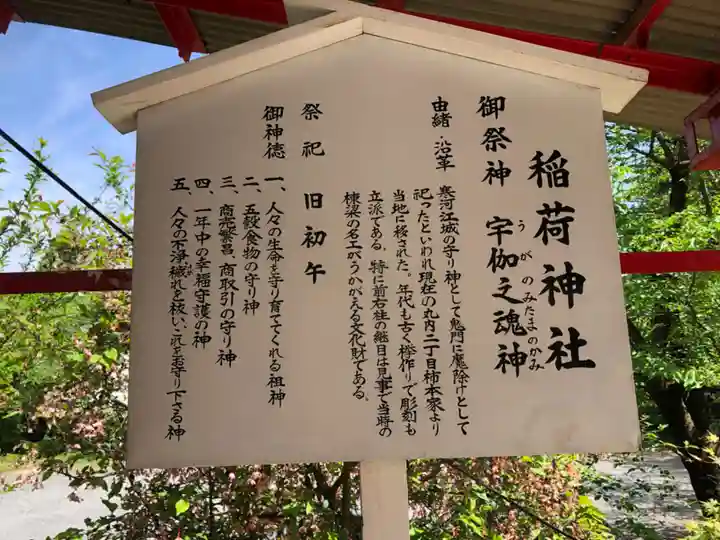 稲荷神社
御祭神 宇伽之魂神
うがのみたまのかみ
由緒・沿革 寒河江城の守り神として鬼門に魔除けとして
祀ったといわれ現在の丸内二丁目柿本家より
当地に移された。年代も古く欅作りで彫刻も
立派である。特に前右柱の継目は見事で当時の
棟梁の名工がうかがえる文化財である。
祭祀 旧初午
御神徳 一、人々の生命を守り育ててくれる祖神
二、五穀食物の守り神
三、商売繁昌、商取引の守り神
四、一年中の幸福守護の神
五、人々の不浄穢れを祓い、これをお守り下さる神